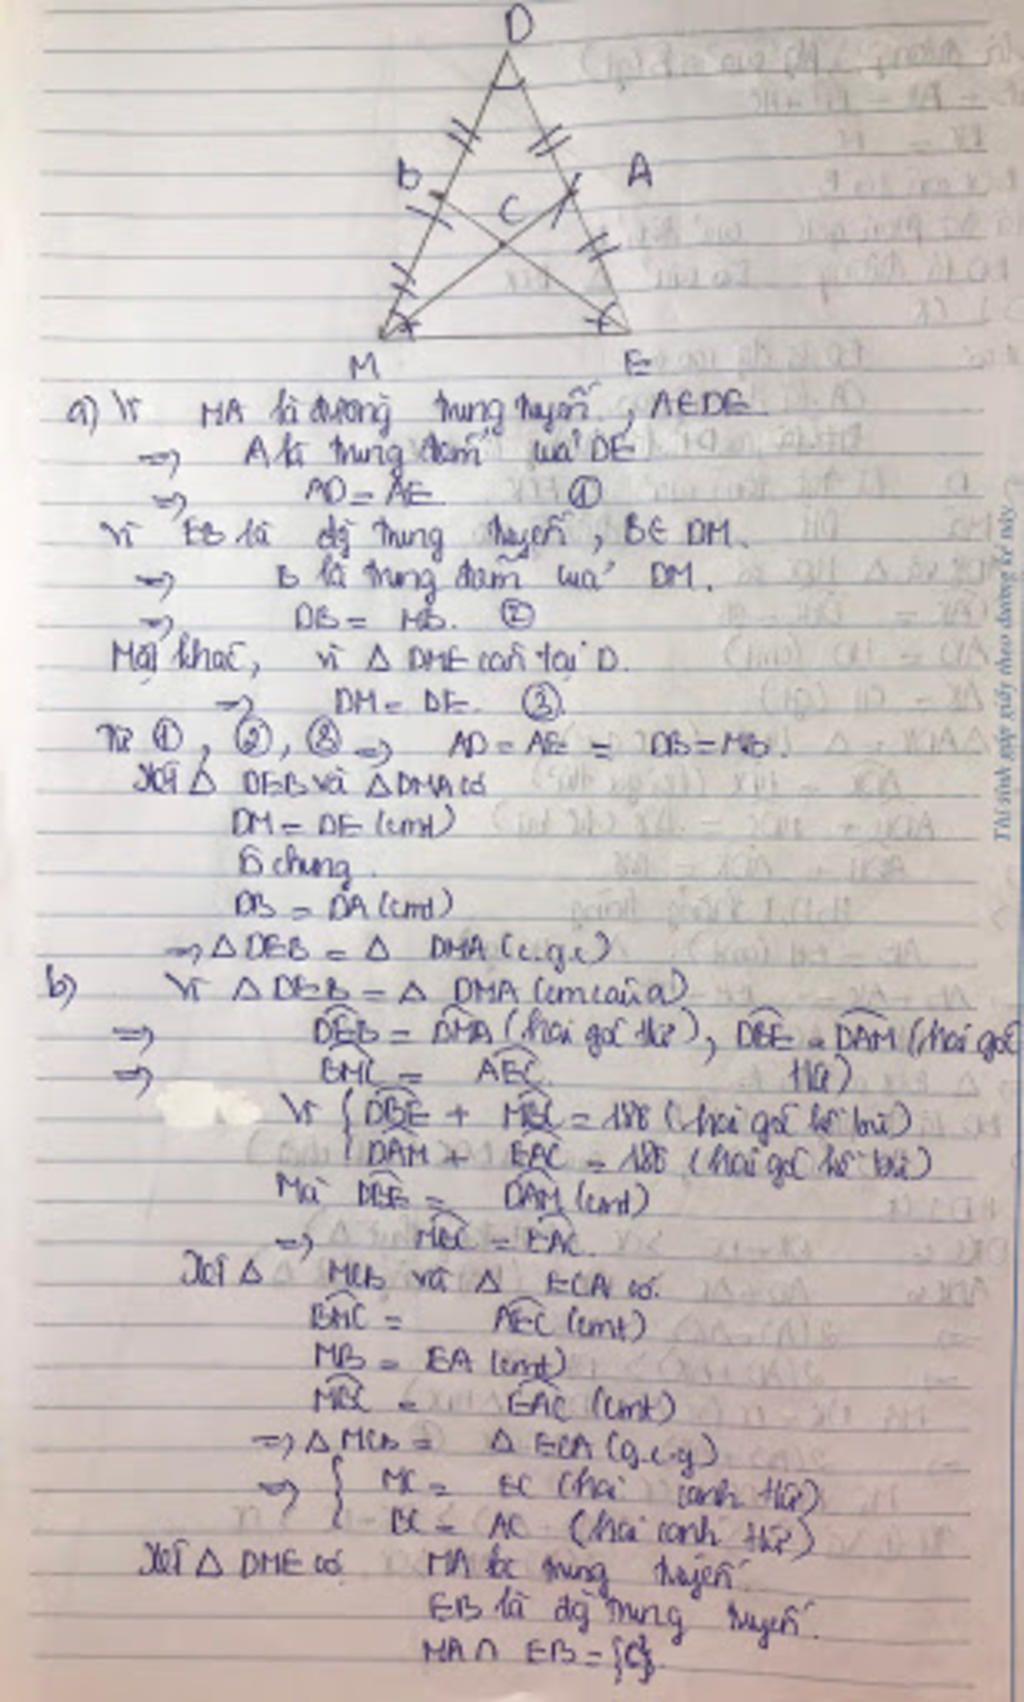 D
b
A
C
M
E
a) Vì MA là đường trung tuyến, A∈DE
=> A là trung điểm của DE
=> AD = AE. ①
Vì EB là đg trung tuyến, B∈ DM.
=> B là trung điểm của DM.
=> DB = MB. ②
Mặt khác, vì △ DME cân tại D.
=> DM = DE. ③
Từ ①, ②, ③ => AD = AE = DB = MB.
Xét △ DEB và △ DMA có
DM = DE (cmt)
D̂ chung.
DB = DA (cmt)
=> △ DEB = △ DMA (c.g.c)
b) Vì △ DEB = △ DMA (cm câu a)
=> DEB = DMA (hai góc t/ư), DBE = DAM (hai góc
=> BMC = AEC. t/ư)
Vì { DBE + MBC = 180 (hai góc kề bù)
DAM + EAC = 180 (hai góc kề bù)
Mà DBE = DAM (cmt)
=> MBC = EAC.
Xét △ MCB và △ ECA có.
BMC = AEC (cmt)
MB = EA (cmt)
MBC = EAC (cmt)
=> △ MCB = △ ECA (g.c.g)
=> { MC = EC (hai cạnh t/ư)
BC = AC (hai cạnh t/ư)
Xét △ DME có MA là trung tuyến.
EB là đg trung tuyến.
MA ∩ EB = {C}.
Thí sinh gấp giấy theo đường kẻ này